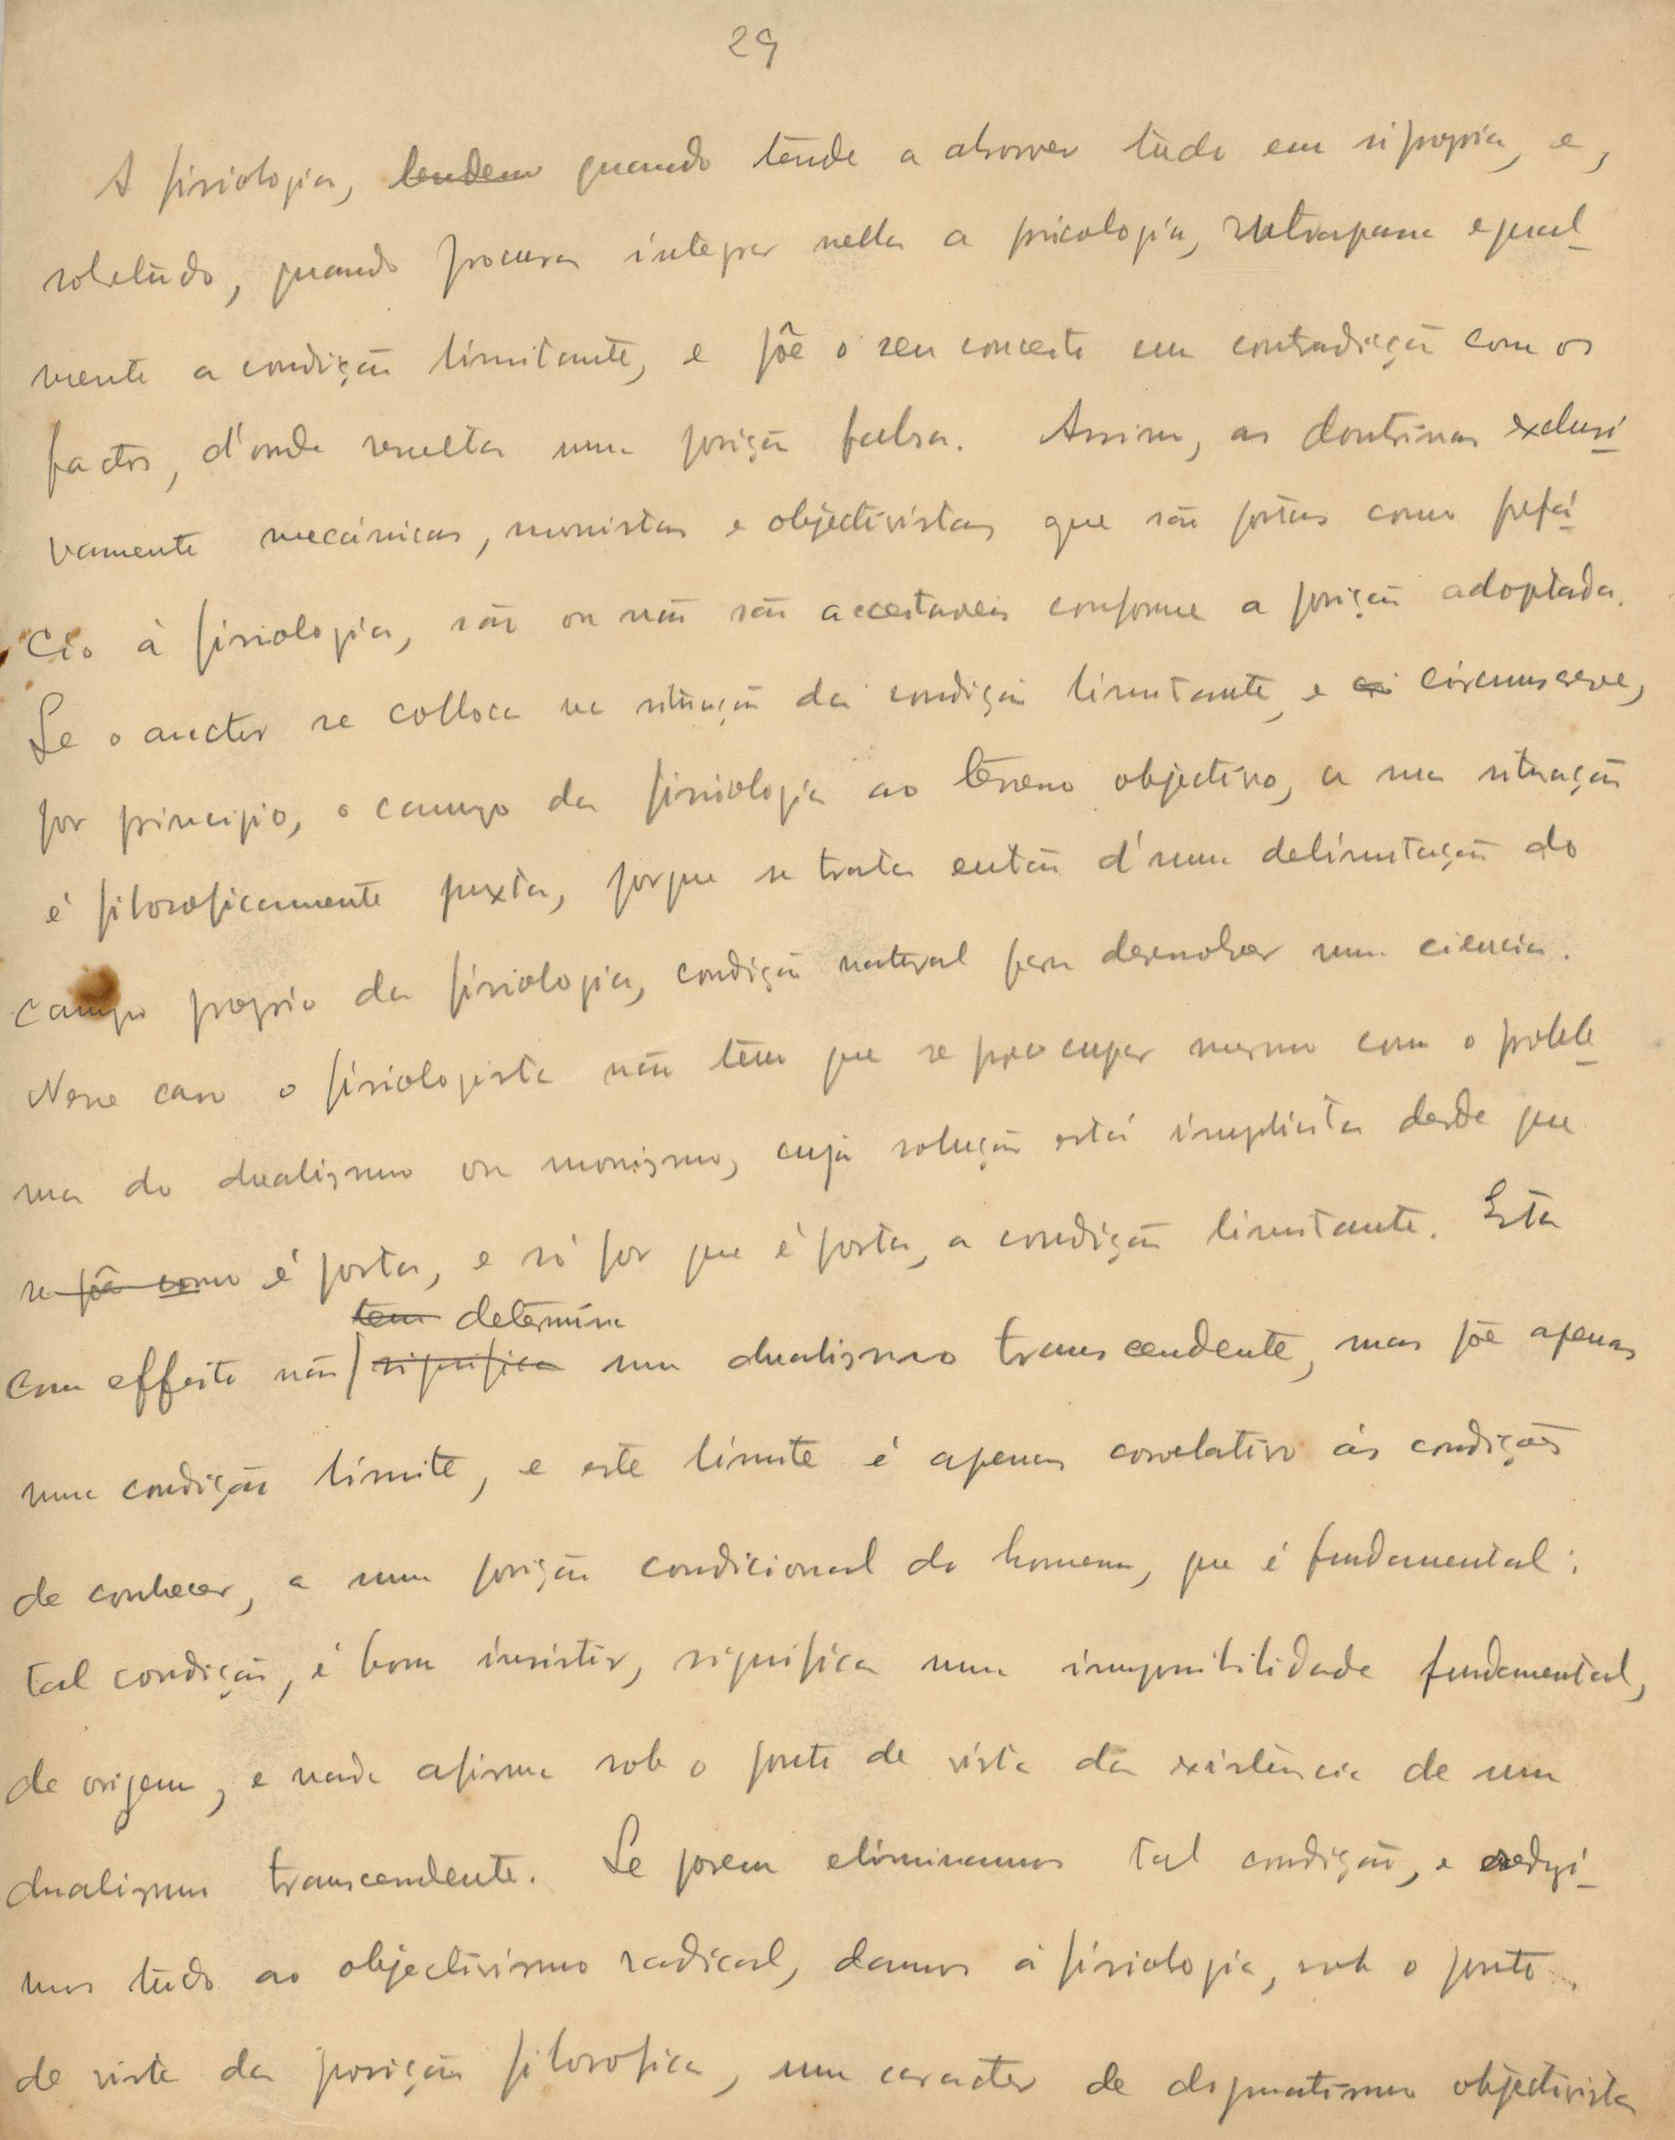 29
A fisiologia, tendem quando tende a absorver tudo em si propria, e,
sobretudo, quando procura integrar nella a psicologia, ultrapassa egual-
mente a condição limitante, e põe o seu conceito em contradicção com os
factos, d'onde resulta uma posição falsa. Assim, as doutrinas exclusi-
vamente mecánicas, monistas e objectivistas que são postas como prefá-
cio à fisiologia, são ou não são acceitaveis conforme a posição adoptada.
Se o auctor se colloca na situação da condição limitante, e circumscreve,
por principio, o campo da fisiologia ao terreno objectivo, a sua situação
é filosoficamente juxta, porque se trata então d'uma delimitação do
campo proprio da fisiologia, condição natural para desenvolver uma ciencia.
Nesse caso o fisiologista não tem que se preocupar mesmo com o proble-
ma do dualismo ou monismo, cuja solução está implicita desde que
se põe como é posta, e só por que é posta, a condição limitante. Esta
tem determina
com effeito não significa um dualismo transcendente, mas põe apenas
uma condição limite, e este limite é apenas correlativo ás condições
de conhecer, a uma posição condicional do homem, que é fundamental;
tal condição, é bom insistir, significa uma impossibilidade fundamental,
de origem, e nada afirma sob o ponto de vista da existència de um
dualismo transcendente. Se porem eliminamos tal condição, e redusi-
mos tudo ao objectivismo radical, damos á fisiologia, sob o ponto
de vista da posição filosofica, um caracter de dogmatismo objectivista